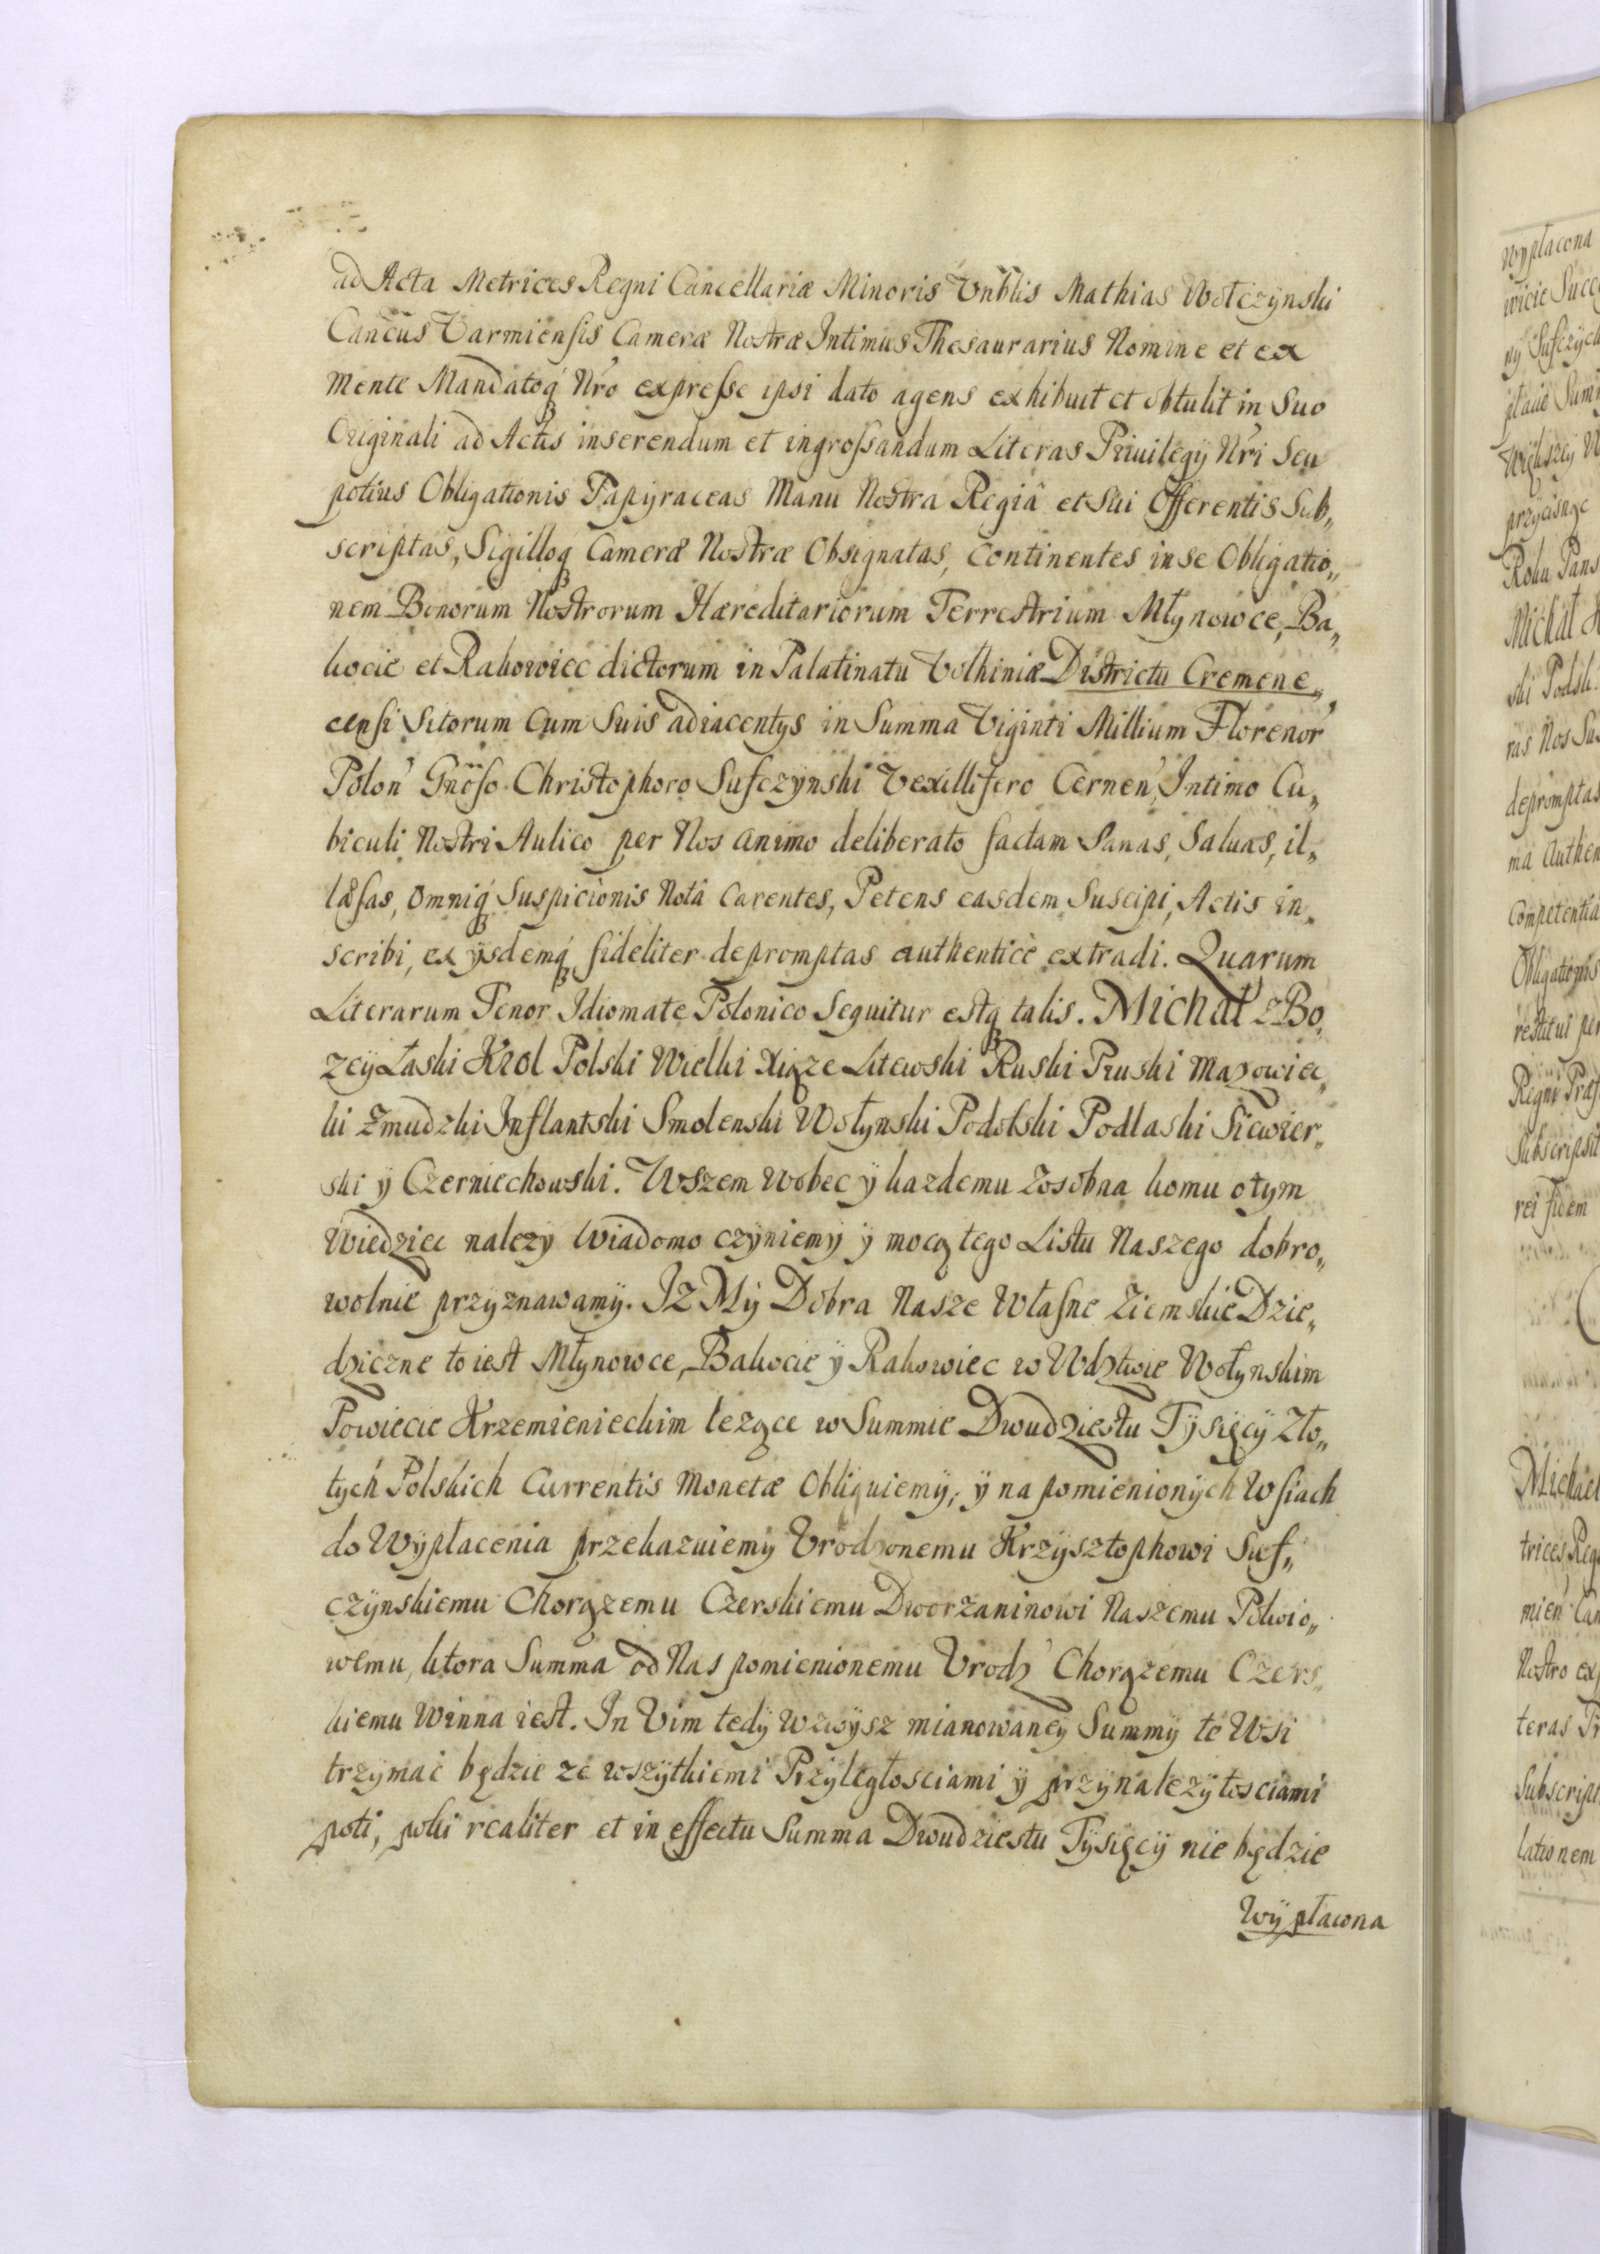 ad Acta Metrices Regni Cancellariæ Minoris Vnblis Mathias Wołczynski
Cancus Varmiensis Cameræ Nostræ Intimus Thesaurarius Nomine et ex
mente Mandatoq́ Nro expresse ipsi dato agens exhibuit et obtulit in Suo
Originali ad Actis inserendum et ingrossandum Literas Priuilegÿ Nri Seu
potius Obligationis Papyraceas Manu Nostra Regiâ et Sui Offerentis Sub„
scriptas, Sigilloq́ Cameræ Nostræ Obsignatas, continentes in se Obligatio„
nem Bonorum Nostrorum Hæreditariorum Terrestrium Młynowce, Ba„
kocie et Rakowiec dictorum in Palatinatu Volhiniæ Districtu Cremene„
censi Sitorum cum Suis adiacentÿs in Summa Viginti Millium Florenor
Polon Gnoso Christophoro Sufczynski Vexillifero Cernen, Intimo Cu„
biculi Nostri Aulico per Nos animo deliberato factam Sanas, Saluas, il„
læsas, omniq́ Suspicionis Notâ Carentes, Petens easdem Suscipi, Actis in„
scribi, ex ÿsdemq́ fideliter depromptas authenticè extradi. Quarum
Literarum Tenor Idiomate Polonico Sequitur estq́ talis. Michał z Bo„
zey Łaski Krol Polski Wielki Xiąze Litewski Ruski Pruski Mazowiec„
ki Zmudzki Inflantski Smolenski Wołynski Podolski Podlaski Siewier„
ski ÿ Czerniechowski. Wszem wobec ÿ kazdemu Zosobna komu o tym
Wiedziec nalezy Wiadomo czyniemy ÿ mocą tego Listu Naszego dobro„
wolnie przyznawamÿ. IZ Mÿ Dobra Nasze Własne Ziemskie Dzie„
dziczne to iest Młynowce, Bakocie ÿ Rakowiec w Wdztwie Wołynskim
Powiecie Krzemienieckim lezące w Summie Dwudziestu Tÿsięcÿ Zło„
tÿch Polskich Currentis Monetæ Obliguiemÿ, ÿ na pomienionÿch Wsiach
do Wÿpłacenia przekazuiemÿ Vrodzonemu Krzysztophowi Suf„
czÿnskiemu Chorązemu Czerskiemu Dworzaninowi Naszemu Pokoio„
wemu, ktora Summa od Nas pomienionemu Vrodz Chorązemu Czers„
kiemu Winna iest. In Vim tedÿ wzwÿsz mianowaneÿ Summÿ te Wsi
trzÿmac będzie ze wszÿtkiemi Przÿległosciami ÿ przÿnalezÿtosciami
poti, poki realiter et in effectu Summa Dwudziestu Tÿsięcÿ nie będzie
Wÿpłacona